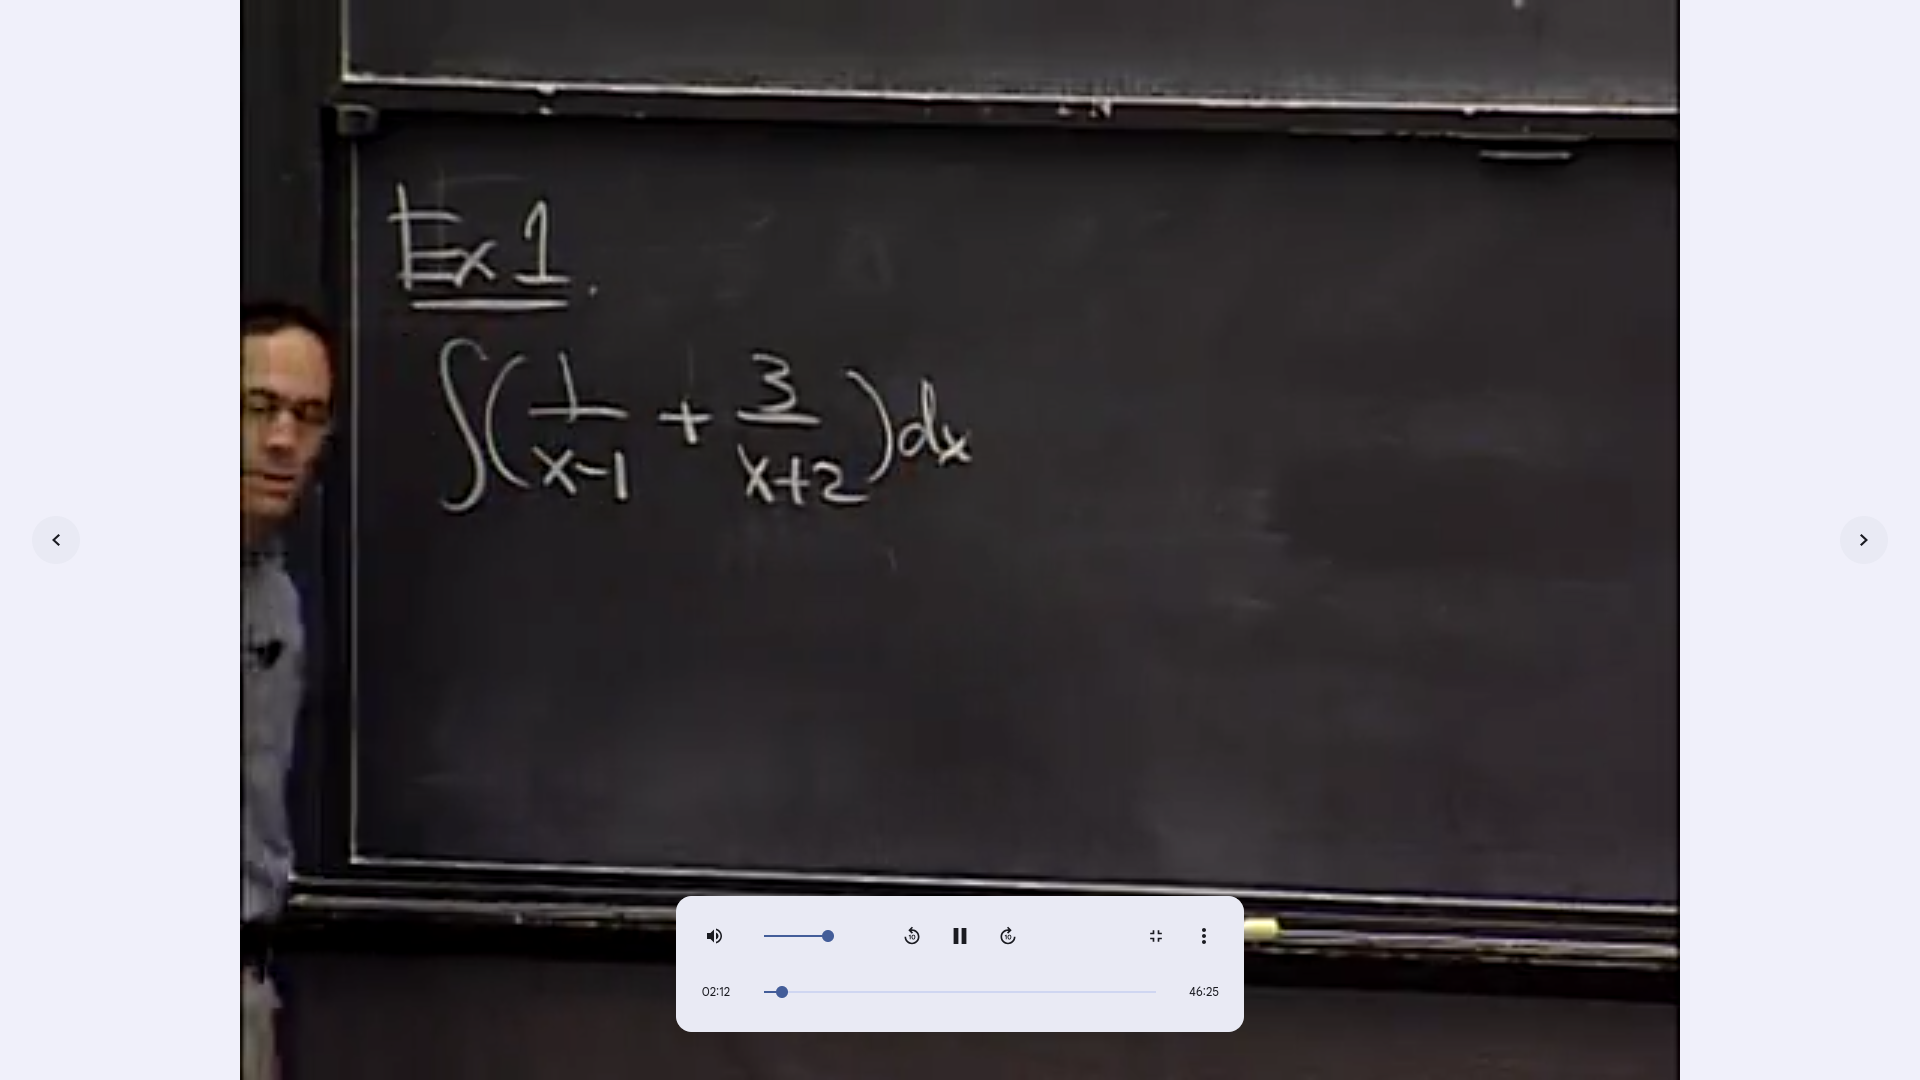 Ex 1.
∫(1/(x-1) + 3/(x+2))dx
10
10
02:12
46:25